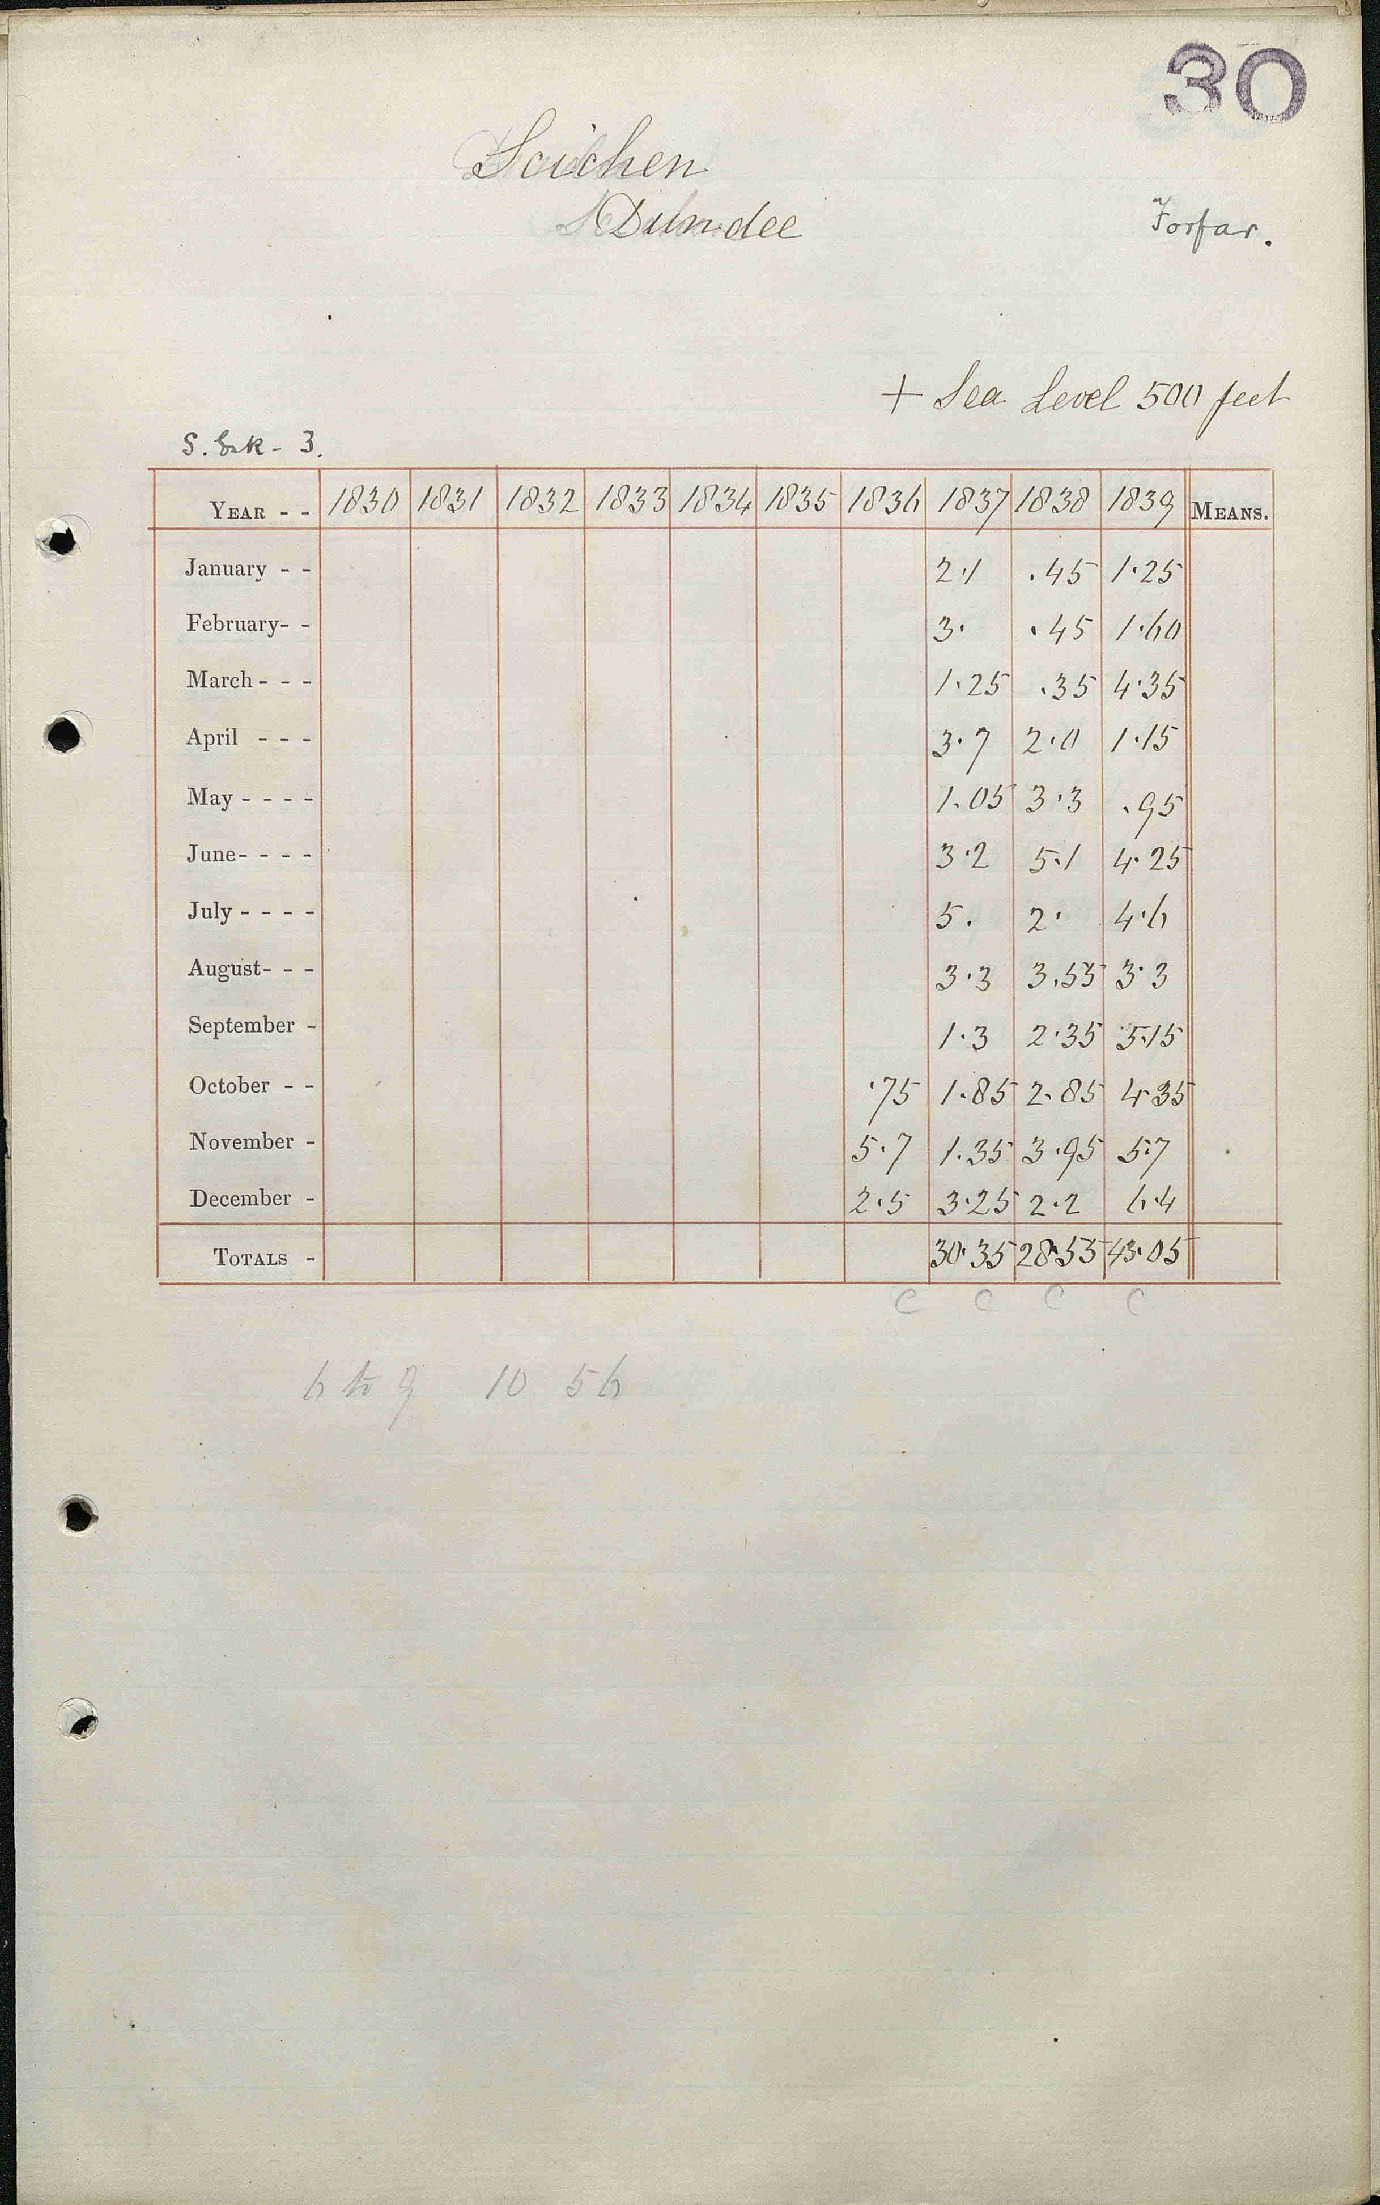 30
Scichen
Dundee
Forfar.
+ Sea Level 500 feet
S. Esk - 3.
YEAR - - 1830 1831 1832 1833 1834 1835 1836 1837 1838 1839 MEANS.
January - - 2.1 .45 1.25
February- - 3. .45 1.60
March - - - 1.25 .35 4.35
April - - - 3.7 2.0 1.15
May - - - - 1.05 3.3 .95
June- - - - 3.2 5.1 4.25
July - - - - 5. 2. 4.6
August- - - 3.3 3.55 3.3
September - 1.3 2.35 5.15
October - - .75 1.85 2.85 4.35
November - 5.7 1.35 3.95 5.7
December - 2.5 3.25 2.2 6.4
TOTALS - 30.35 28.55 43.05
C C C C
6 to 9 10 56